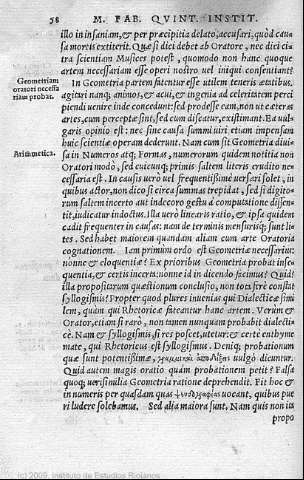 58 M. FAB. QVINT. INSTIT.
illo in insaniam, & per præcipitia delato, accusari, quòd cau-
sa mortis extiterit. Quæ si dici debet ab Oratore, nec dici ci-
tra scientiam Musices potest, quomodo non hanc quoque
artem necessariam esse operi nostro uel iniqui consentiant?
Geometriam
oratori necessa
riam probat.
In Geometria partem fatentur esse utilem teneris ætatibus.
agitari nanq; animos, & acui, & ingenia ad celeritatem perci
piendi uenire inde concedunt: sed prodesse eam, non ut cæteras
artes, cum perceptæ sint, sed cum discatur, existimant. Ea uul-
garis opinio est: nec sine causa summi uiri etiam impensam
huic scientiæ operam dederunt. Nam cum sit Geometria diui-
Arithmetica.
sa in Numeros atq; Formas, numerorum quidem notitia non
Oratori modò, sed cuicunq; primis saltem literis erudito ne-
cessaria est. In causis uerò uel frequentissimè uersari solet, in
quibus actor, non dico si circa summas trepidat, sed si digito-
rum saltem incerto aut indecoro gestu à computatione dissen-
tit, iudicatur indoctus. Illa uerò linearis ratio, & ipsa quidem
cadit frequenter in causas: nam de terminis mensurisq; sunt li-
tes. Sed habet maiorem quandam aliam cum arte Oratoria
cognationem. Iam primum ordo est Geometriæ necessarius:
nonne & eloquentiæ? Ex prioribus Geometria probat inse-
quentia, & certis incerta: nonne id in dicendo facimus? Quid?
illa propositarum quæstionum conclusio, non tota ferè constat
syllogismis? Propter quod plures inuenias qui Dialecticæ simi
lem, quàm qui Rhetoricæ fateantur hanc artem. Verùm &
Orator, etiam si rarò, non tamen nunquam probabit dialecti-
cè. Nam & syllogismis, si res poscet, utetur: & certè enthyme
mate, qui Rhetoricus est syllogismus. Deniq; probationum
quæ sunt potentissimæ, uulgò dicuntur.
Quid autem magis oratio quàm probationem petit? Falsa
quoq; uerisimilia Geometria ratione deprehendit. Fit hoc &
in numeris per quasdam quas uocant, quibus pue
ri ludere solebamus. Sed alia maiora sunt. Nam quis non ita
propo
(c) 2009, Instituto de Estudios Riojanos